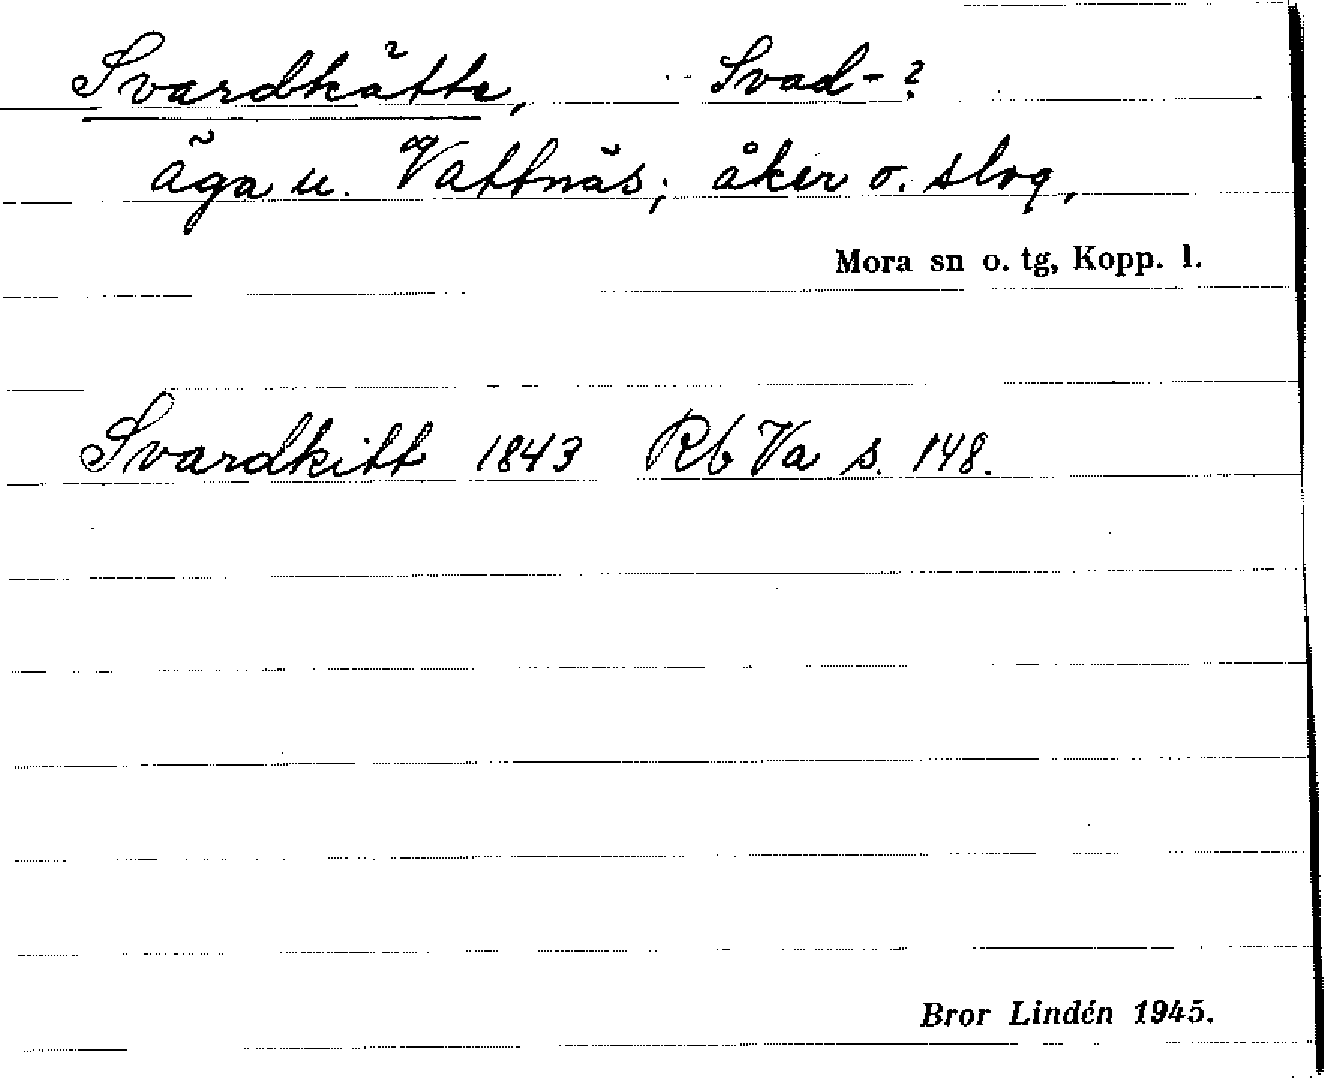 Svardkätte, Svad-?
äga u. Vattnäs; åker o. slog,
Mora sn o. tg, Kopp. l.
Svardkitt 1843 Rb Va s. 148.
Bror Lindén 1945.